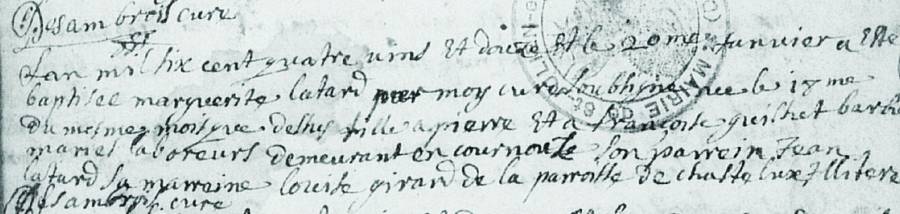 Desambrois cure
Lan mil six cent quatre vins et douze et le 20me Janvier a este
baptisee marguerite latard par moy cure soubsigne nee le 18me
du mesmes mois que dessus fille a pierre et a françoise guilhet
maries laboreurs demeurant en cournouse son parrein Jean
latard sa marraine louise girard de la parroisse de chastelux Illiteres
Desambrois cure
MAIRIE